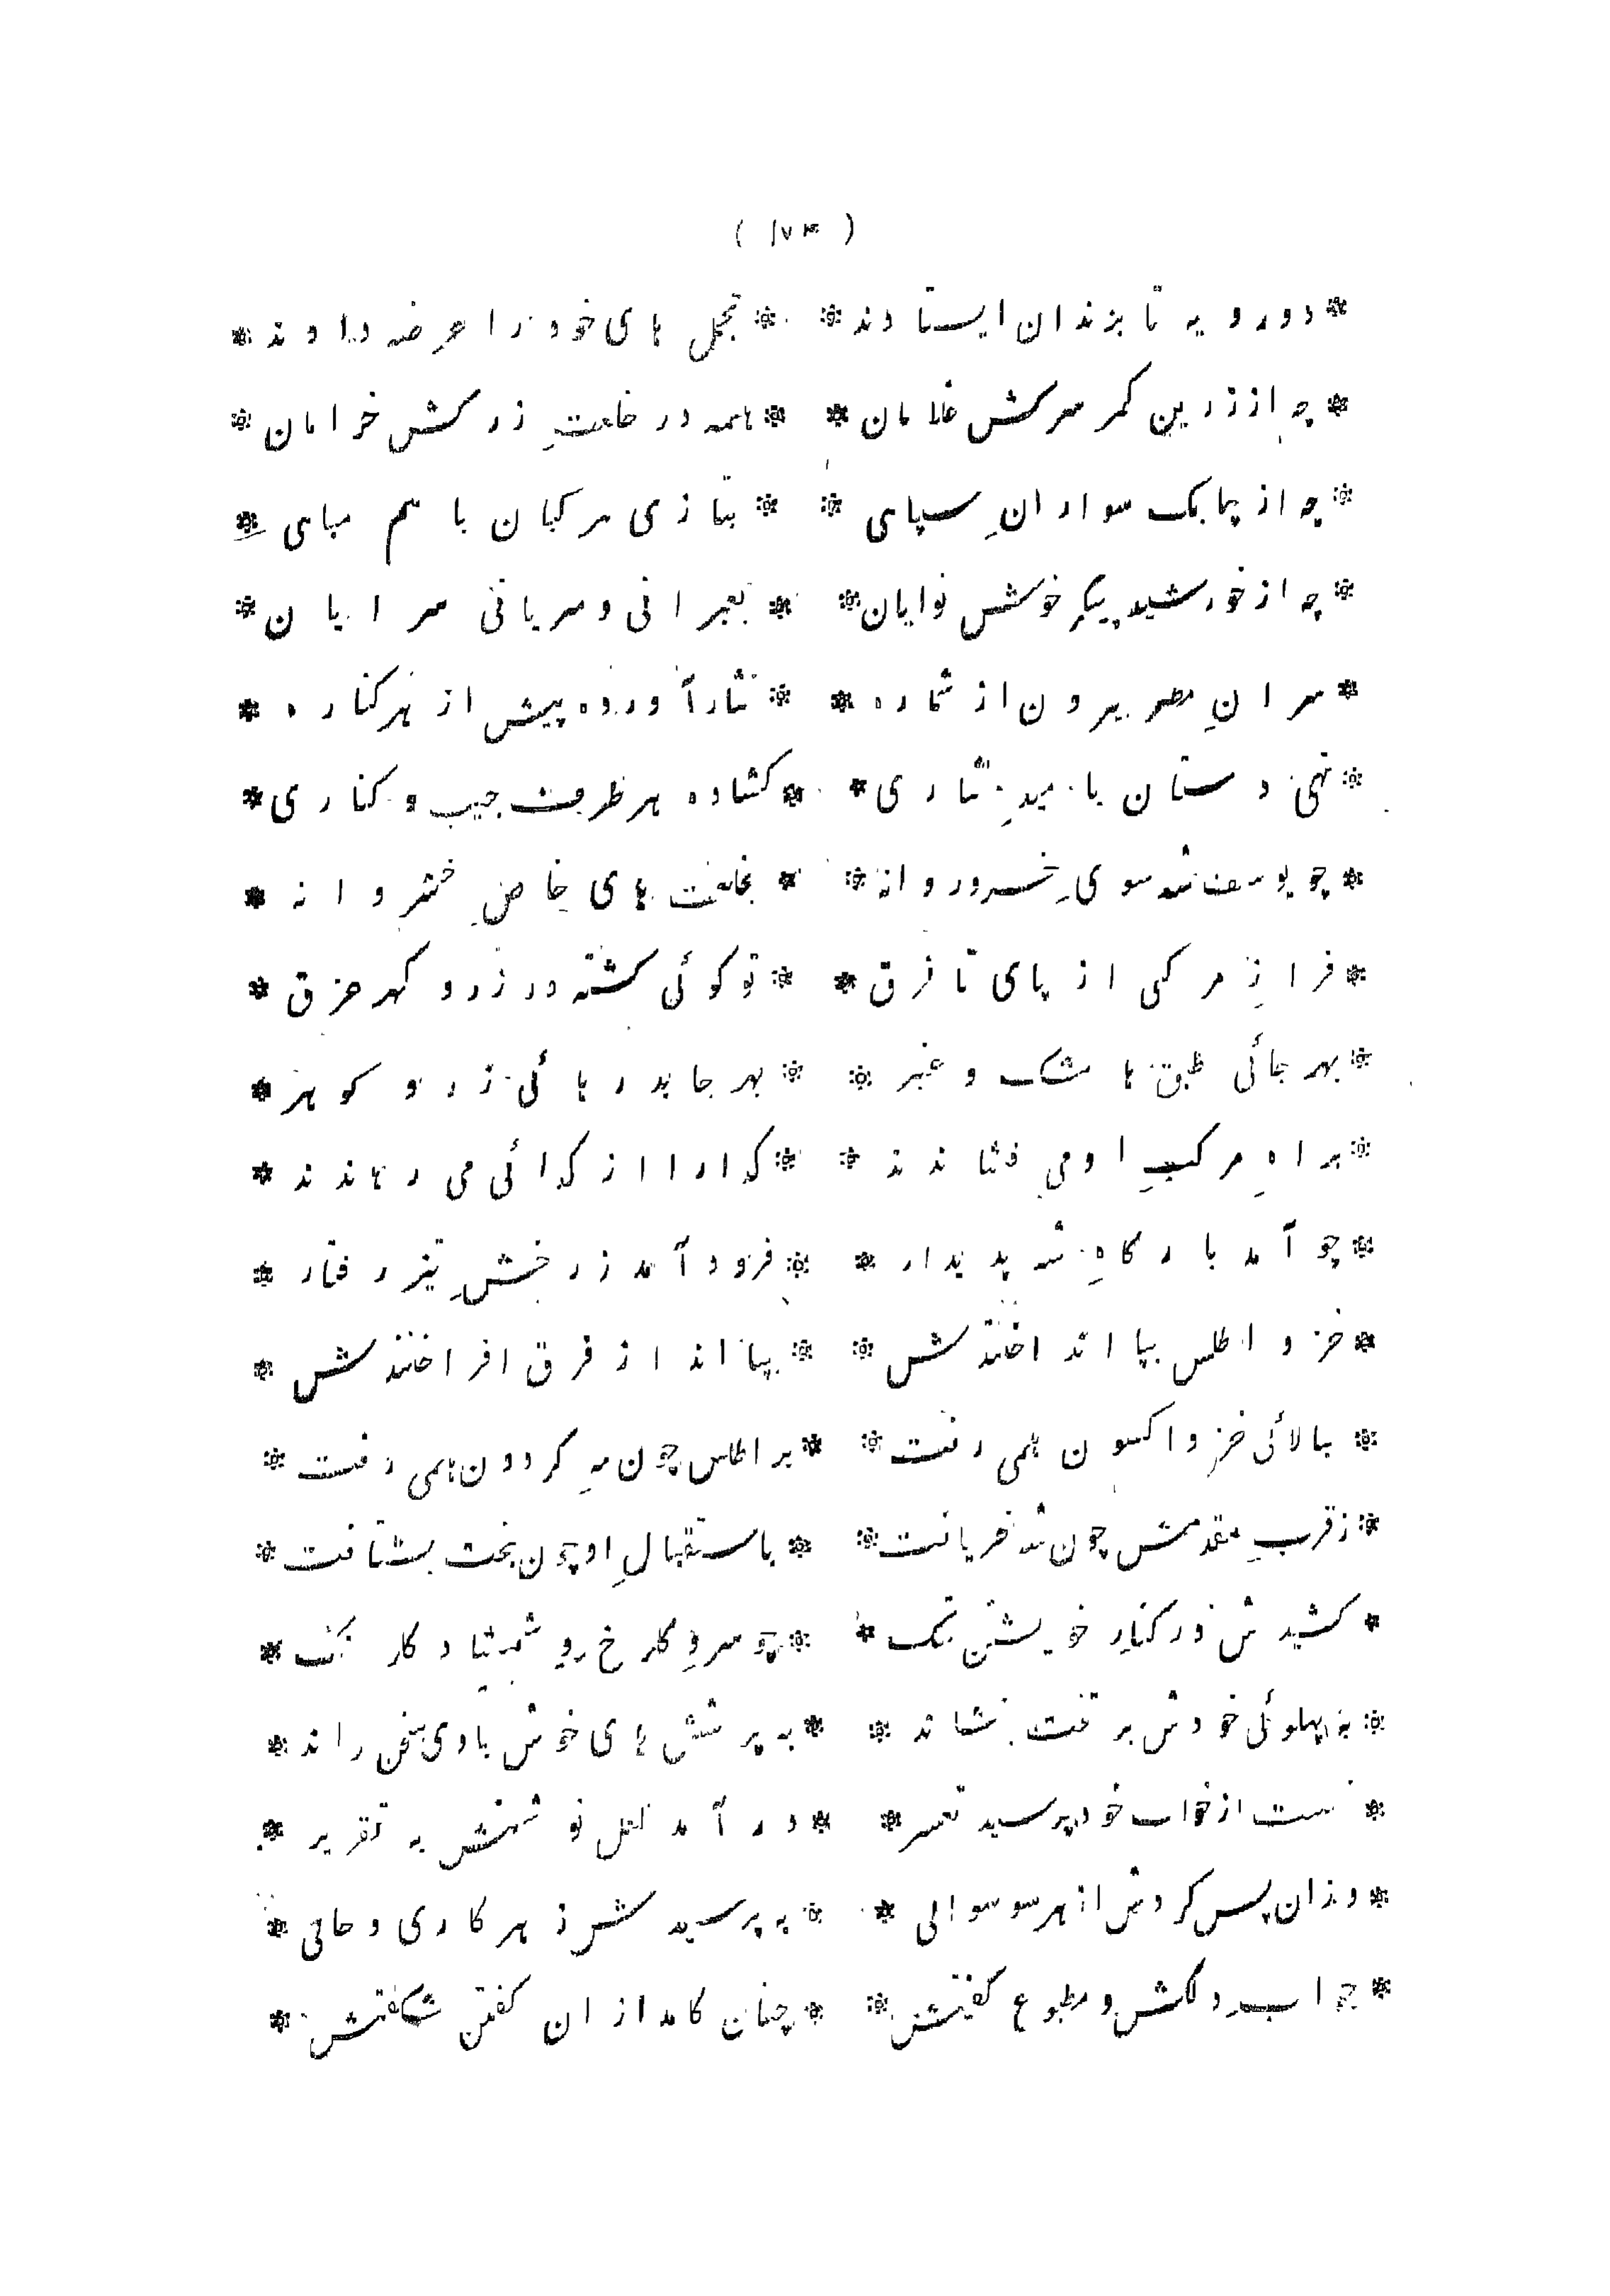 ( ۱۷۳ )
* دو رویه تا بزندان ایستادند * * تجمل های خود را عرضه دادند *
* چه از زرین کمر سرکش غلامان * * همه در خلعتِ زرکش خرامان *
* چه از چابک سوارانِ سپاهی * * بتازی مرکبان با هم مباهی *
* چه از خورشید پیکرِ خوش نوایان * * بعبرانی و سریانی سرایان *
* سرانِ مصر بیرون از شماره * * نثار آورده پیش از هر کناره *
* تهی دستان بامیدِ نثاری * * کشاده هر طرف جیب و کناری *
* چو یوسف شد سوی خسرو روانه * * بخلعت های خاصِ خسروانه *
* فرازِ مرکبی از پای تا فرق * * تو کوئی کشته در زر و کهر غرق *
* بهر جائی طبق ها مشک و عنبر * * بهر جا بدرهائی زر و کوهر *
* براهِ مرکبِ او می فشاندند * * کدا را از کدائی می رهاندند *
* چو آمد بارکاهِ شه پدیدار * * فرود آمد ز رخشِ تیز رفتار *
* خز و اطلس بپا انداختندش * * بپا انداز فرق افراختندش *
* ببالائی خز و اکسون همی رفت * * بر اطلس چون مهِ کردون همی رفت *
* ز قربِ مقدمش چون شه خبر یافت * * باستقبالِ او چون بخت بشتافت *
* کشیدش در کنارِ خویشتن تنک * * چو سروِ کلرخ و شمشاد کلرنک *
* به پهلوئی خودش بر تخت بنشاند * * به پرسش های خوش با وی سخن راند *
* نخست از خواب خود پرسید تعبیر * * در آمد لعل نوشینش به تقریر *
* وزان پس کردش از هر سو سوالی * * به پرسیدش ز هر کاری و حالی *
* جوابِ دلکش و مطبوع کفتش * * چنان کامد ازان کفتن شکفتش *